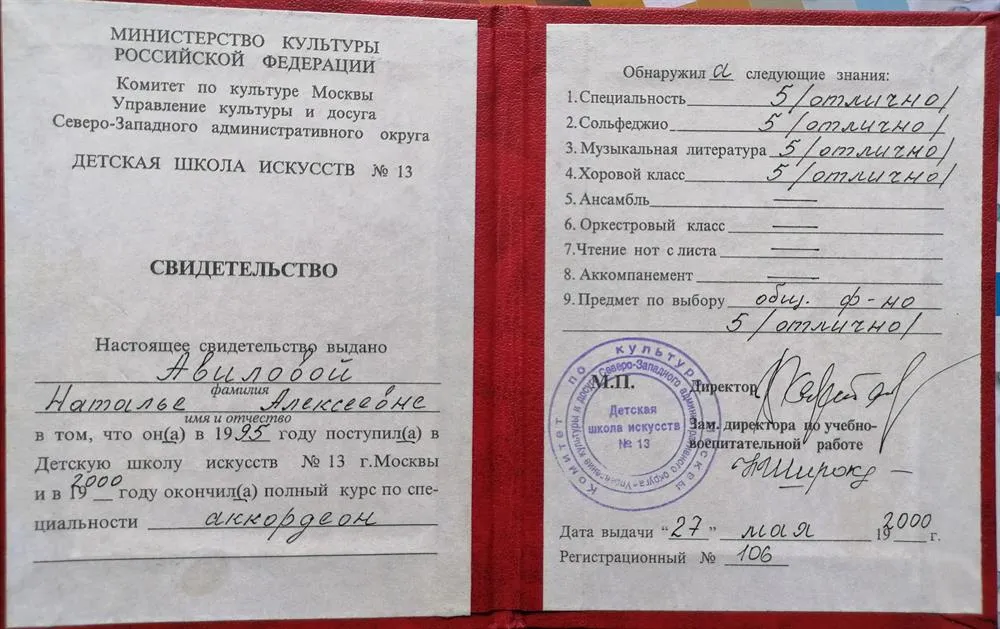 МИНИСТЕРСТВО КУЛЬТУРЫ
РОССИЙСКОЙ ФЕДЕРАЦИИ
Комитет по культуре Москвы
Управление культуры и досуга
Северо-Западного административного округа
ДЕТСКАЯ ШКОЛА ИСКУССТВ № 13
СВИДЕТЕЛЬСТВО
Настоящее свидетельство выдано
Авиловой
фамилия
Наталье Алексеевне
имя и отчество
в том, что он(а) в 1995 году поступил(а) в
Детскую школу искусств № 13 г.Москвы
и в 19 2000 году окончил(а) полный курс по спе-
циальности аккордеон
Обнаружил а следующие знания:
1. Специальность 5 /отлично/
2. Сольфеджио 5 /отлично/
3. Музыкальная литература 5 /отлично/
4. Хоровой класс 5 /отлично/
5. Ансамбль —
6. Оркестровый класс —
7. Чтение нот с листа —
8. Аккомпанемент —
9. Предмет по выбору общ. ф-но
5 /отлично/
М.П.
Директор
Зам. директора по учебно-
воспитательной работе
Комитет по культуре Москвы
Управление культуры и досуга Северо-Западного административного округа
Детская
школа искусств
№ 13
Дата выдачи “27” мая 19 2000 г.
Регистрационный № 106